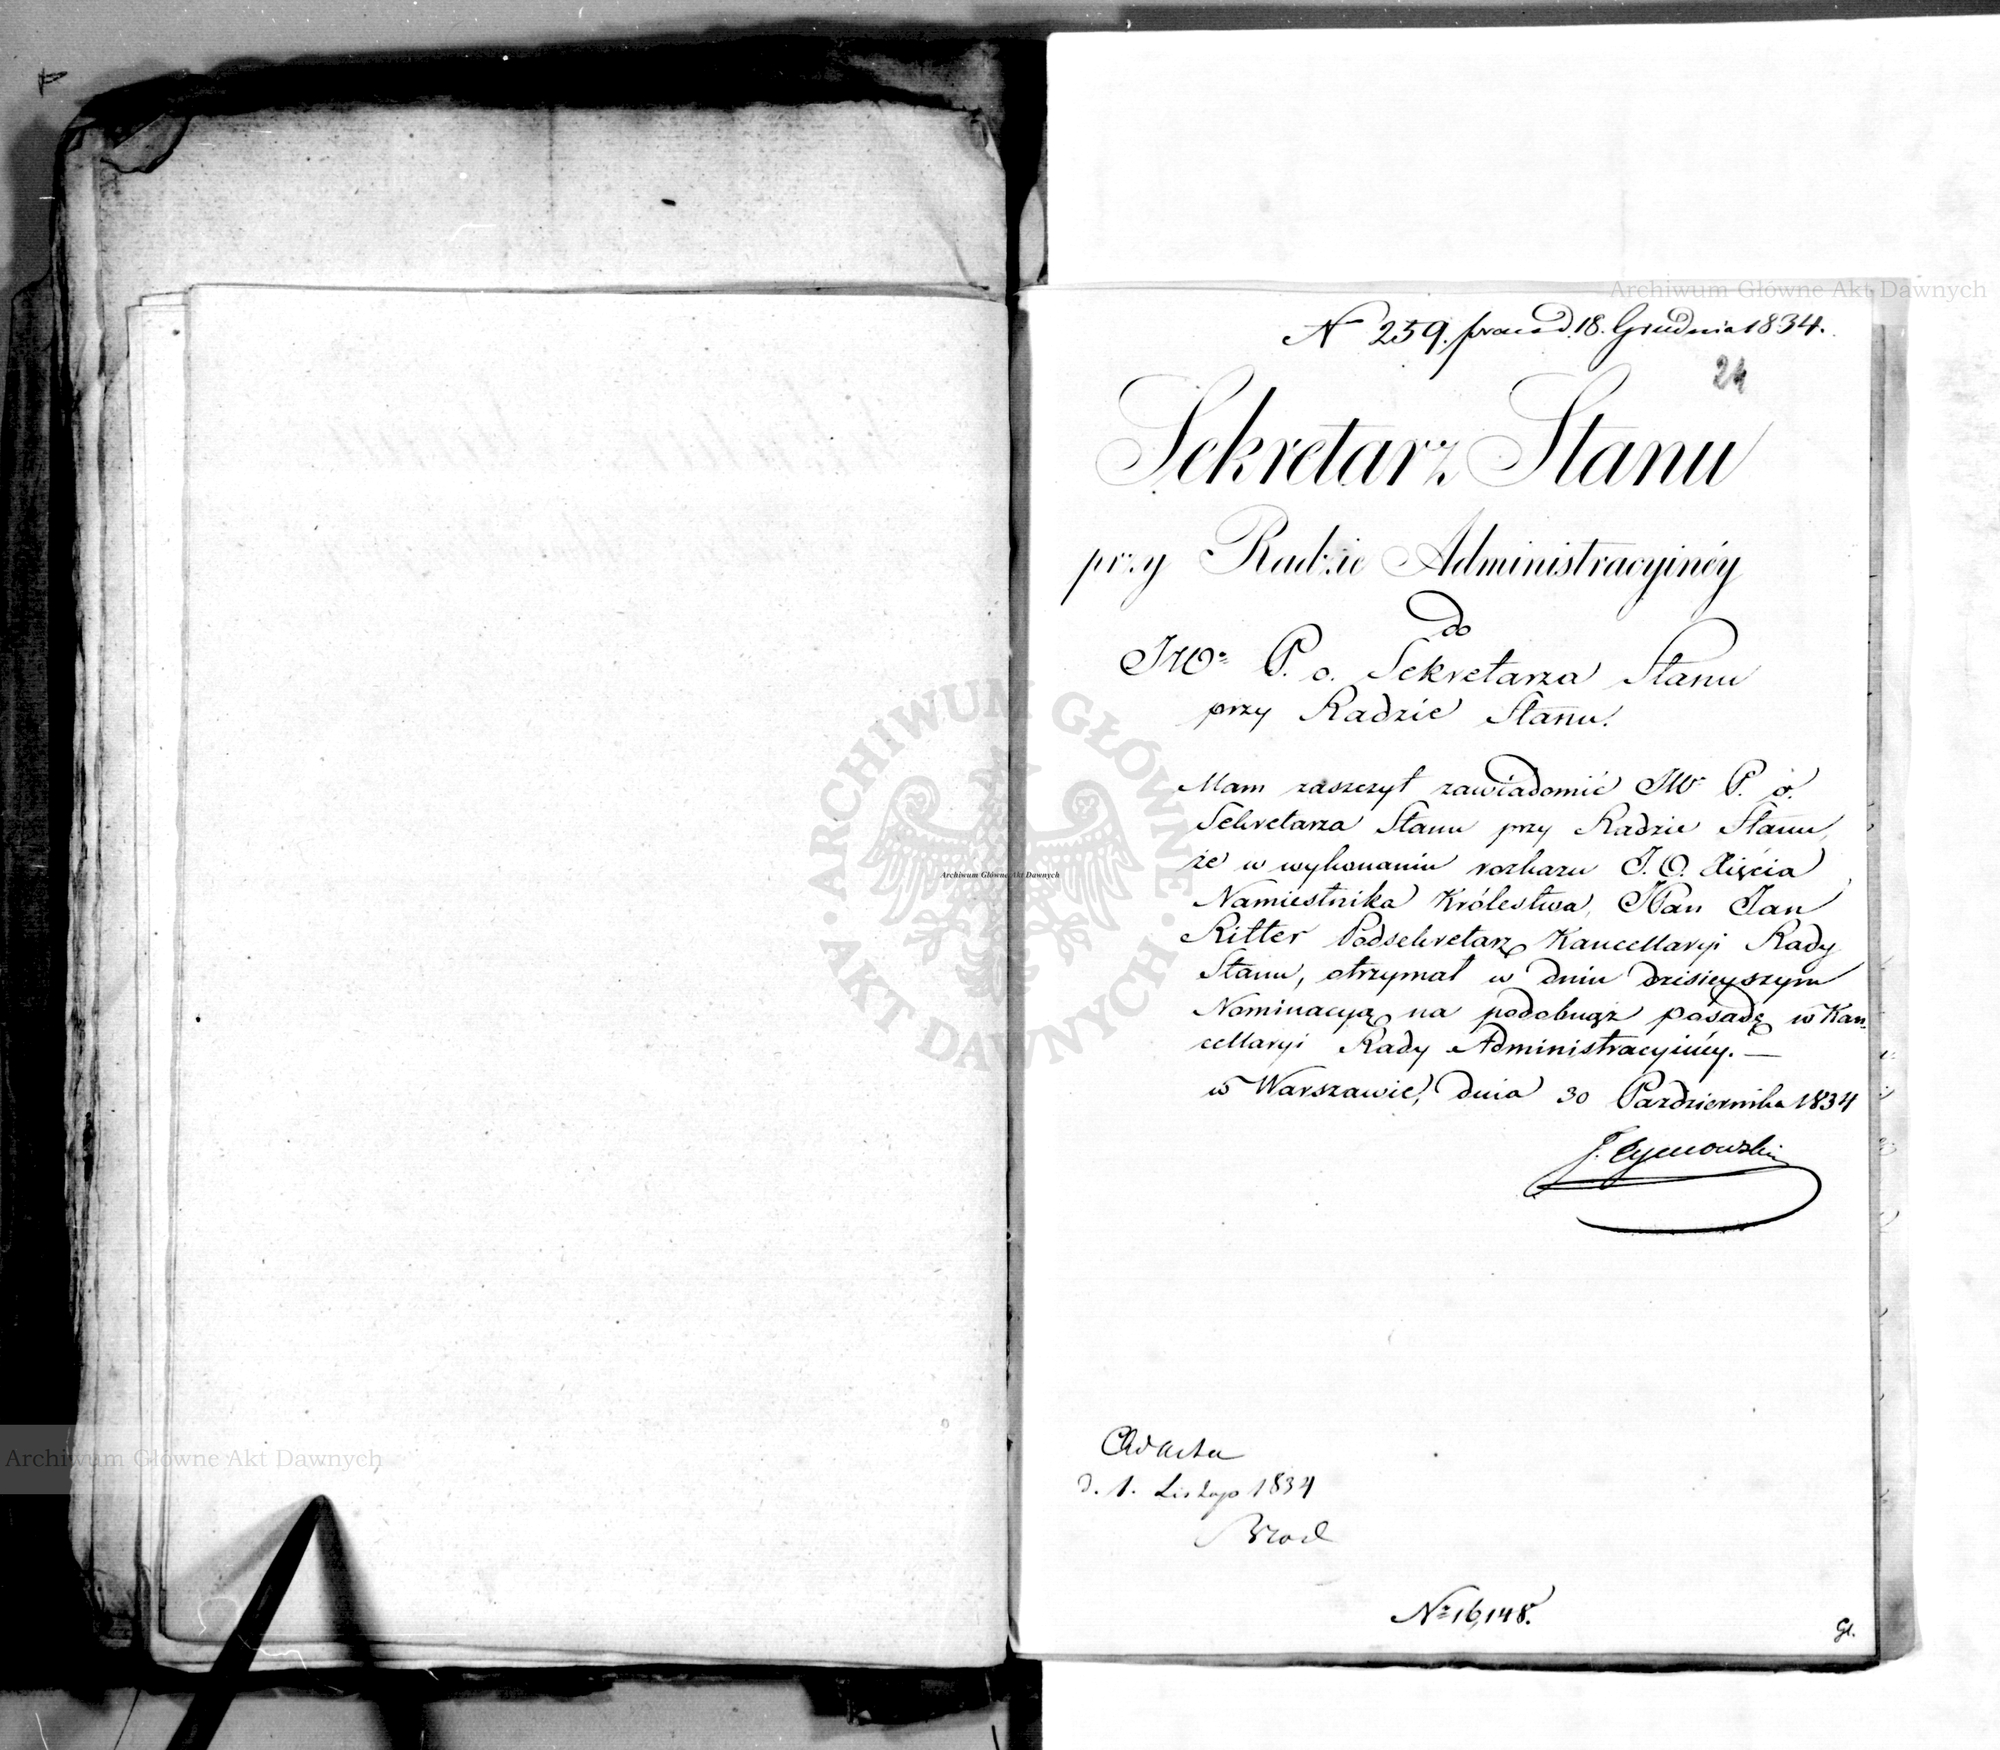 № 259. praes d. 18. Grudnia 1834.
24
Sekretarz Stanu
przy Radzie Administracyinéy
do
JWo P. o. Sekretarza Stanu
przy Radzie Stanu.
Mam zaszczyt zawiadomić JW P. o.
Sekretarza Stanu przy Radzie Stanu,
że w wykonaniu rozkazu J. O. Xięcia
Namiestnika Królestwa, JPan Jan
Ritter Podsekretarz Kancellaryi Rady
Stanu, otrzymał w dniu dzisieyszym
Nominacyą na podobnąż posadę w Kan-
cellaryi Rady Administracyinéy. —
w Warszawie, dnia 30 Października 1834
J. Tymowski
Ad acta
d. 1. Listop 1834
№ 16,148.
Gl.
ARCHIWUM GŁÓWNE AKT DAWNYCH
Archiwum Główne Akt Dawnych
Archiwum Główne Akt Dawnych
Archiwum Główne Akt Dawnych